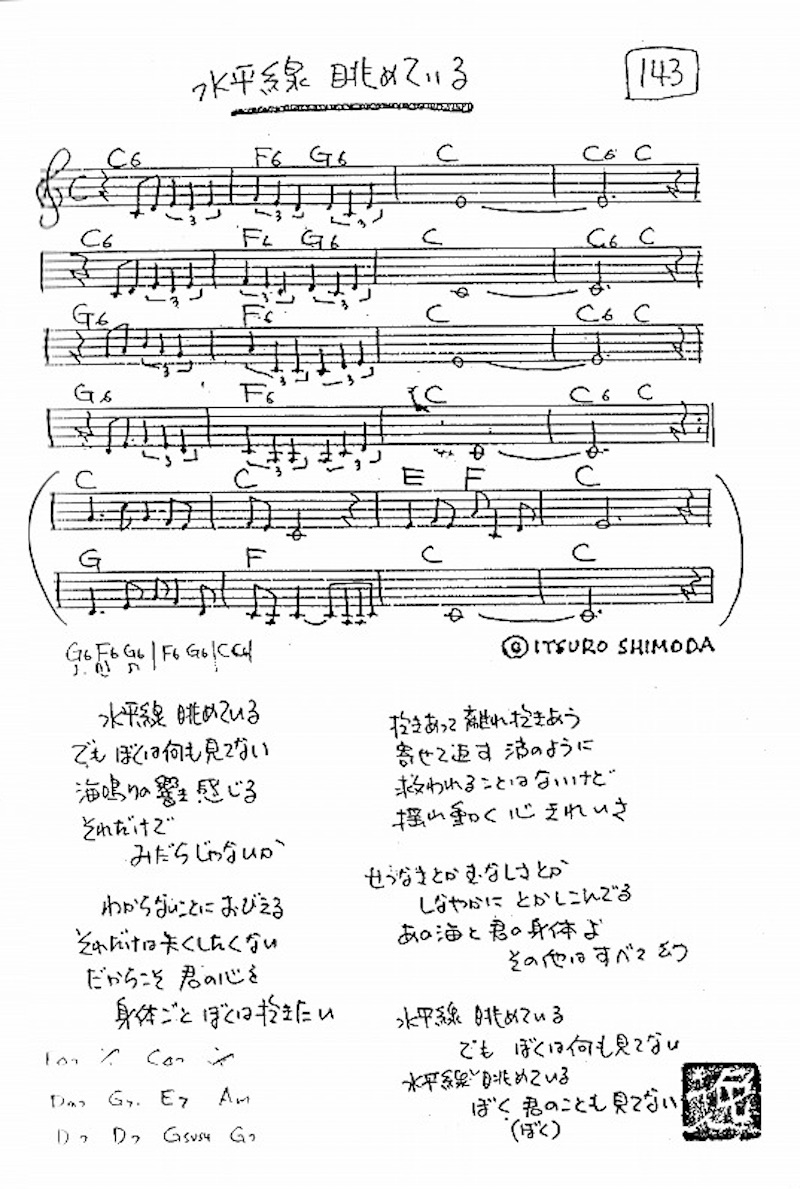 水平線 眺めている
143
C6 F6 G6 C C6 C
C6 F6 G6 C C6 C
G6 F6 C C6 C
G6 F6 C C6 C
C C E F C
G F C C
G6 F6 G6 | F6 G6 | C C6
©ITSURO SHIMODA
水平線 眺めている
でも ぼくは何も見てない
海鳴りの響き 感じる
それだけで
みだらじゃないか
わからないことに おびえる
それだけは失くしたくない
だからこそ 君の心を
身体ごと ぼくは抱きたい
抱きあって 離れ 抱きあう
寄せて返す 波のように
救われることはないけど
揺れ動く 心 きれいさ
せつなさとか むなしさとか
しなやかに とかしこんでる
あの海と 君の身体よ
その他は すべて
水平線 眺めている
でも ぼくは何も見てない
水平線 眺めている
ぼく 君のことも 見てない
(ぼく)
G7 E7 Am
D7 D7 Gsus4 G7